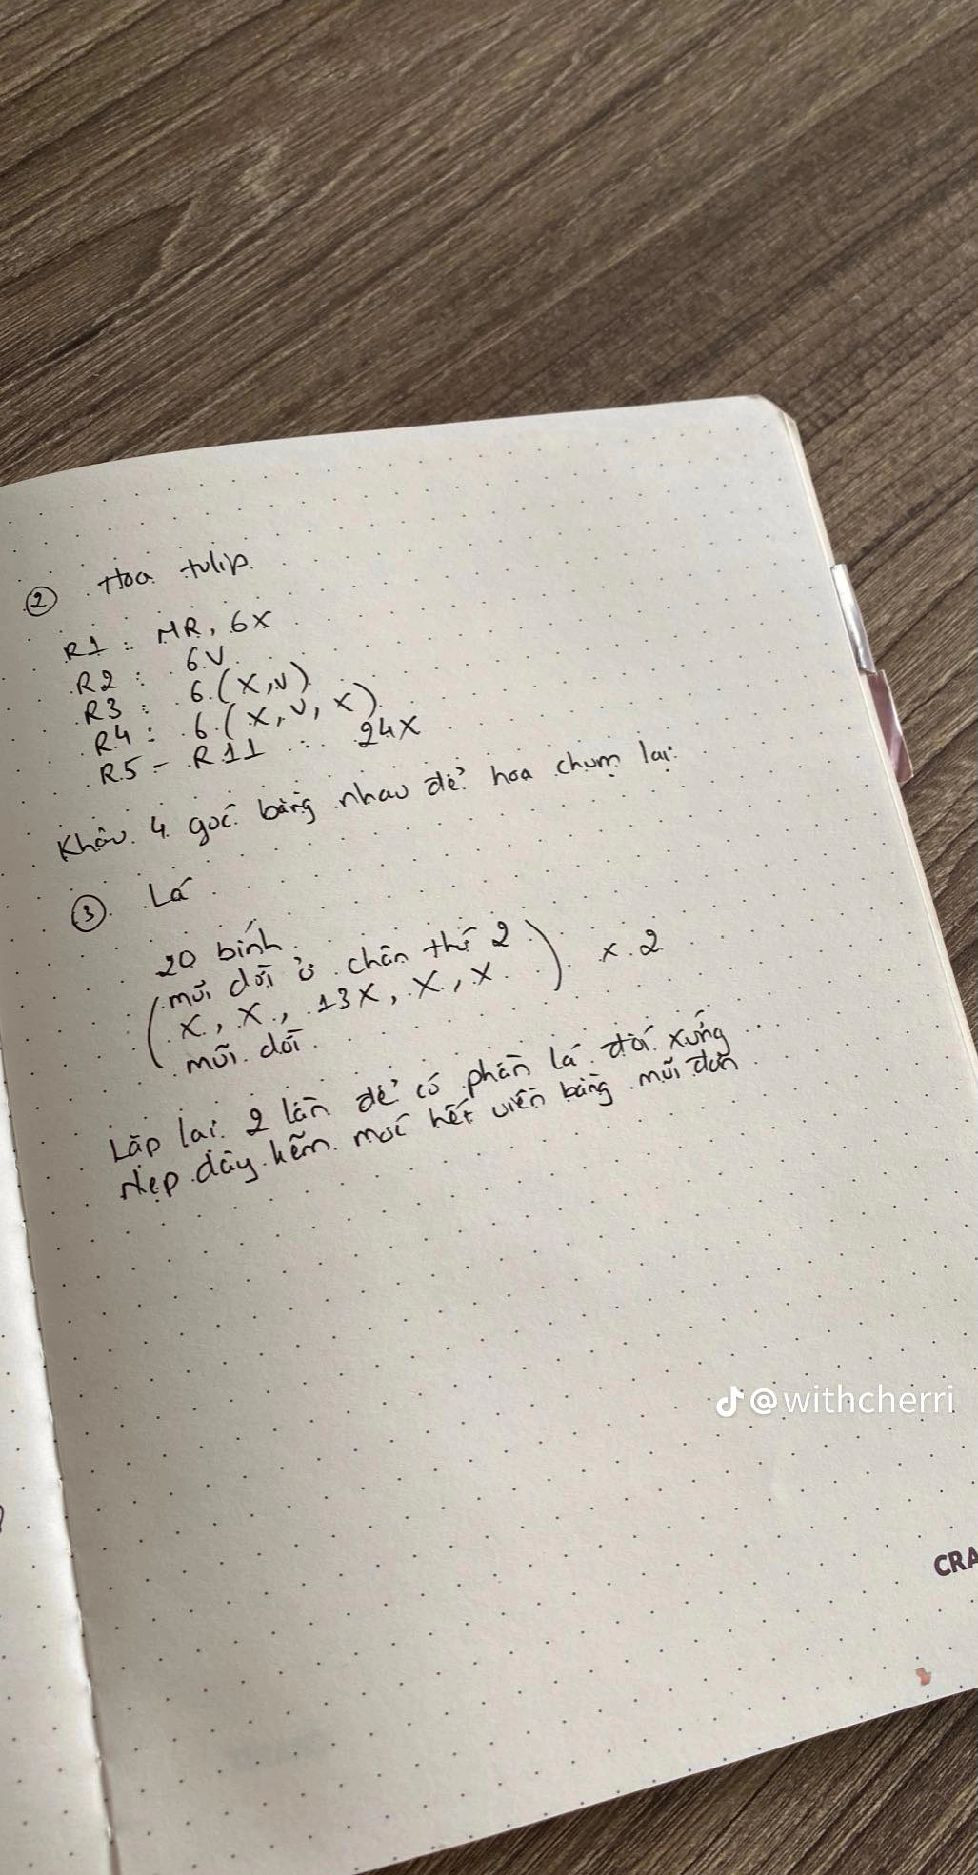 ② Hoa tulip
R1 : MR, 6X
R2 : 6V
R3 : 6 (X,V)
R4 : 6 (X, V, X)
R5 - R11 : 24X
Khâu 4 góc bằng nhau để hoa chụm lại
③ Lá
20 bính
(mũi dời ở chân thứ 2
X, X, 13X, X, X ) x 2
mũi dời
Lặp lại 2 lần để có phần lá đối xứng
Nẹp dây kẽm móc hết viền bằng mũi đơn
@withcherri
CRA